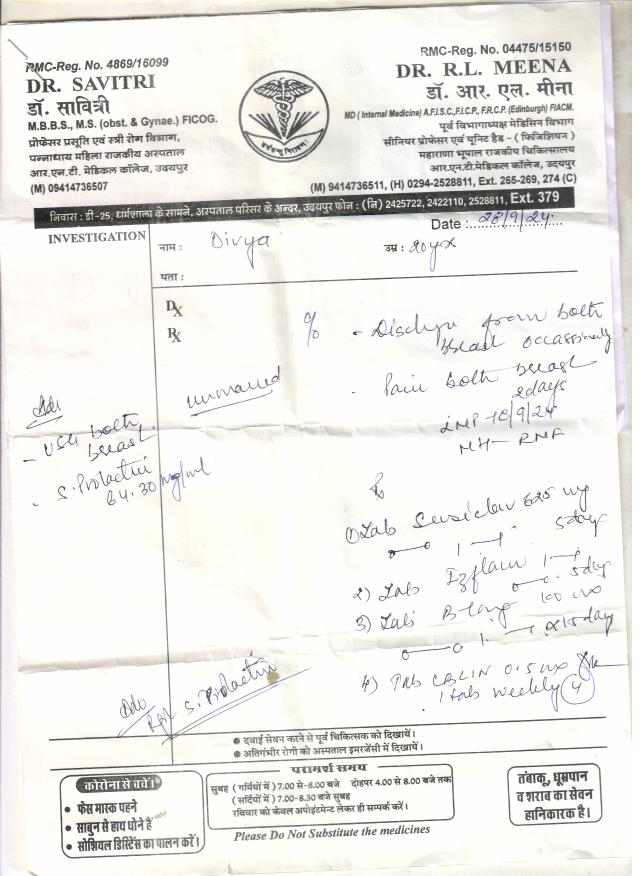 RMC-Reg. No. 4869/16099
DR. SAVITRI
डॉ. सावित्री
M.B.B.S., M.S. (obst. & Gynae.) FICOG.
प्रोफेसर प्रसूति एवं स्त्री रोग विभाग,
पन्नाधाय महिला राजकीय अस्पताल
आर.एन.टी. मेडिकल कॉलेज, उदयपुर
(M) 09414736507
RMC-Reg. No. 04475/15150
DR. R.L. MEENA
डॉ. आर. एल. मीना
MD ( Internal Medicine) A.F.I.S.C.,F.I.C.P., F.R.C.P. (Edinburgh) FIACM.
पूर्व विभागाध्यक्ष मेडिसिन विभाग
सीनियर प्रोफेसर एवं यूनिट हैड - ( फिजिशियन )
महाराणा भूपाल राजकीय चिकित्सालय
आर.एन.टी.मेडिकल कॉलेज, उदयपुर
(M) 9414736511, (H) 0294-2528811, Ext. 265-269, 274 (C)
निवास : डी-25, धर्मशाला के सामने, अस्पताल परिसर के अन्दर, उदयपुर फोन : (नि) 2425722, 2422110, 2528811, Ext. 379
Date : 28/9/24
INVESTIGATION
नाम : Divya
उम्र : 20yr
पता :
Dx
Rx
c/o - from both
breast occassionaly
unmarried
- Pain both breast
2days
LMP-18/9/24
MH- RMF
Adv
- USG both
breast.
- S. Prolactin
64.30 ng/ml
R
1) Tab 625 mg
1 5days
2) Tab 1 5day
3) Tab B-long 100 mg
1 x 15 day
4) Tab CBLIN 0.5 mg
1 tab weekly (4)
Adv
Rpt S. Prolactin
● दवाई सेवन करने से पूर्व चिकित्सक को दिखायें।
● अतिगंभीर रोगी को अस्पताल इमरजेंसी में दिखायें।
कोरोना से बचें।
● फेस मास्क पहने
● साबुन से हाथ धोने हैं
● सोशियल डिस्टिेंस का पालन करें।
परामर्श समय
सुबह ( गर्मियों में ) 7.00 से-8.00 बजे दोहपर 4.00 से 8.00 बजे तक
( सर्दियों में ) 7.00-8.30 बजे सुबह
रविवार को केवल अपोइंटमेन्ट लेकर ही सम्पर्क करें।
Please Do Not Substitute the medicines
तंबाकू, धूम्रपान
व शराब का सेवन
हानिकारक है।